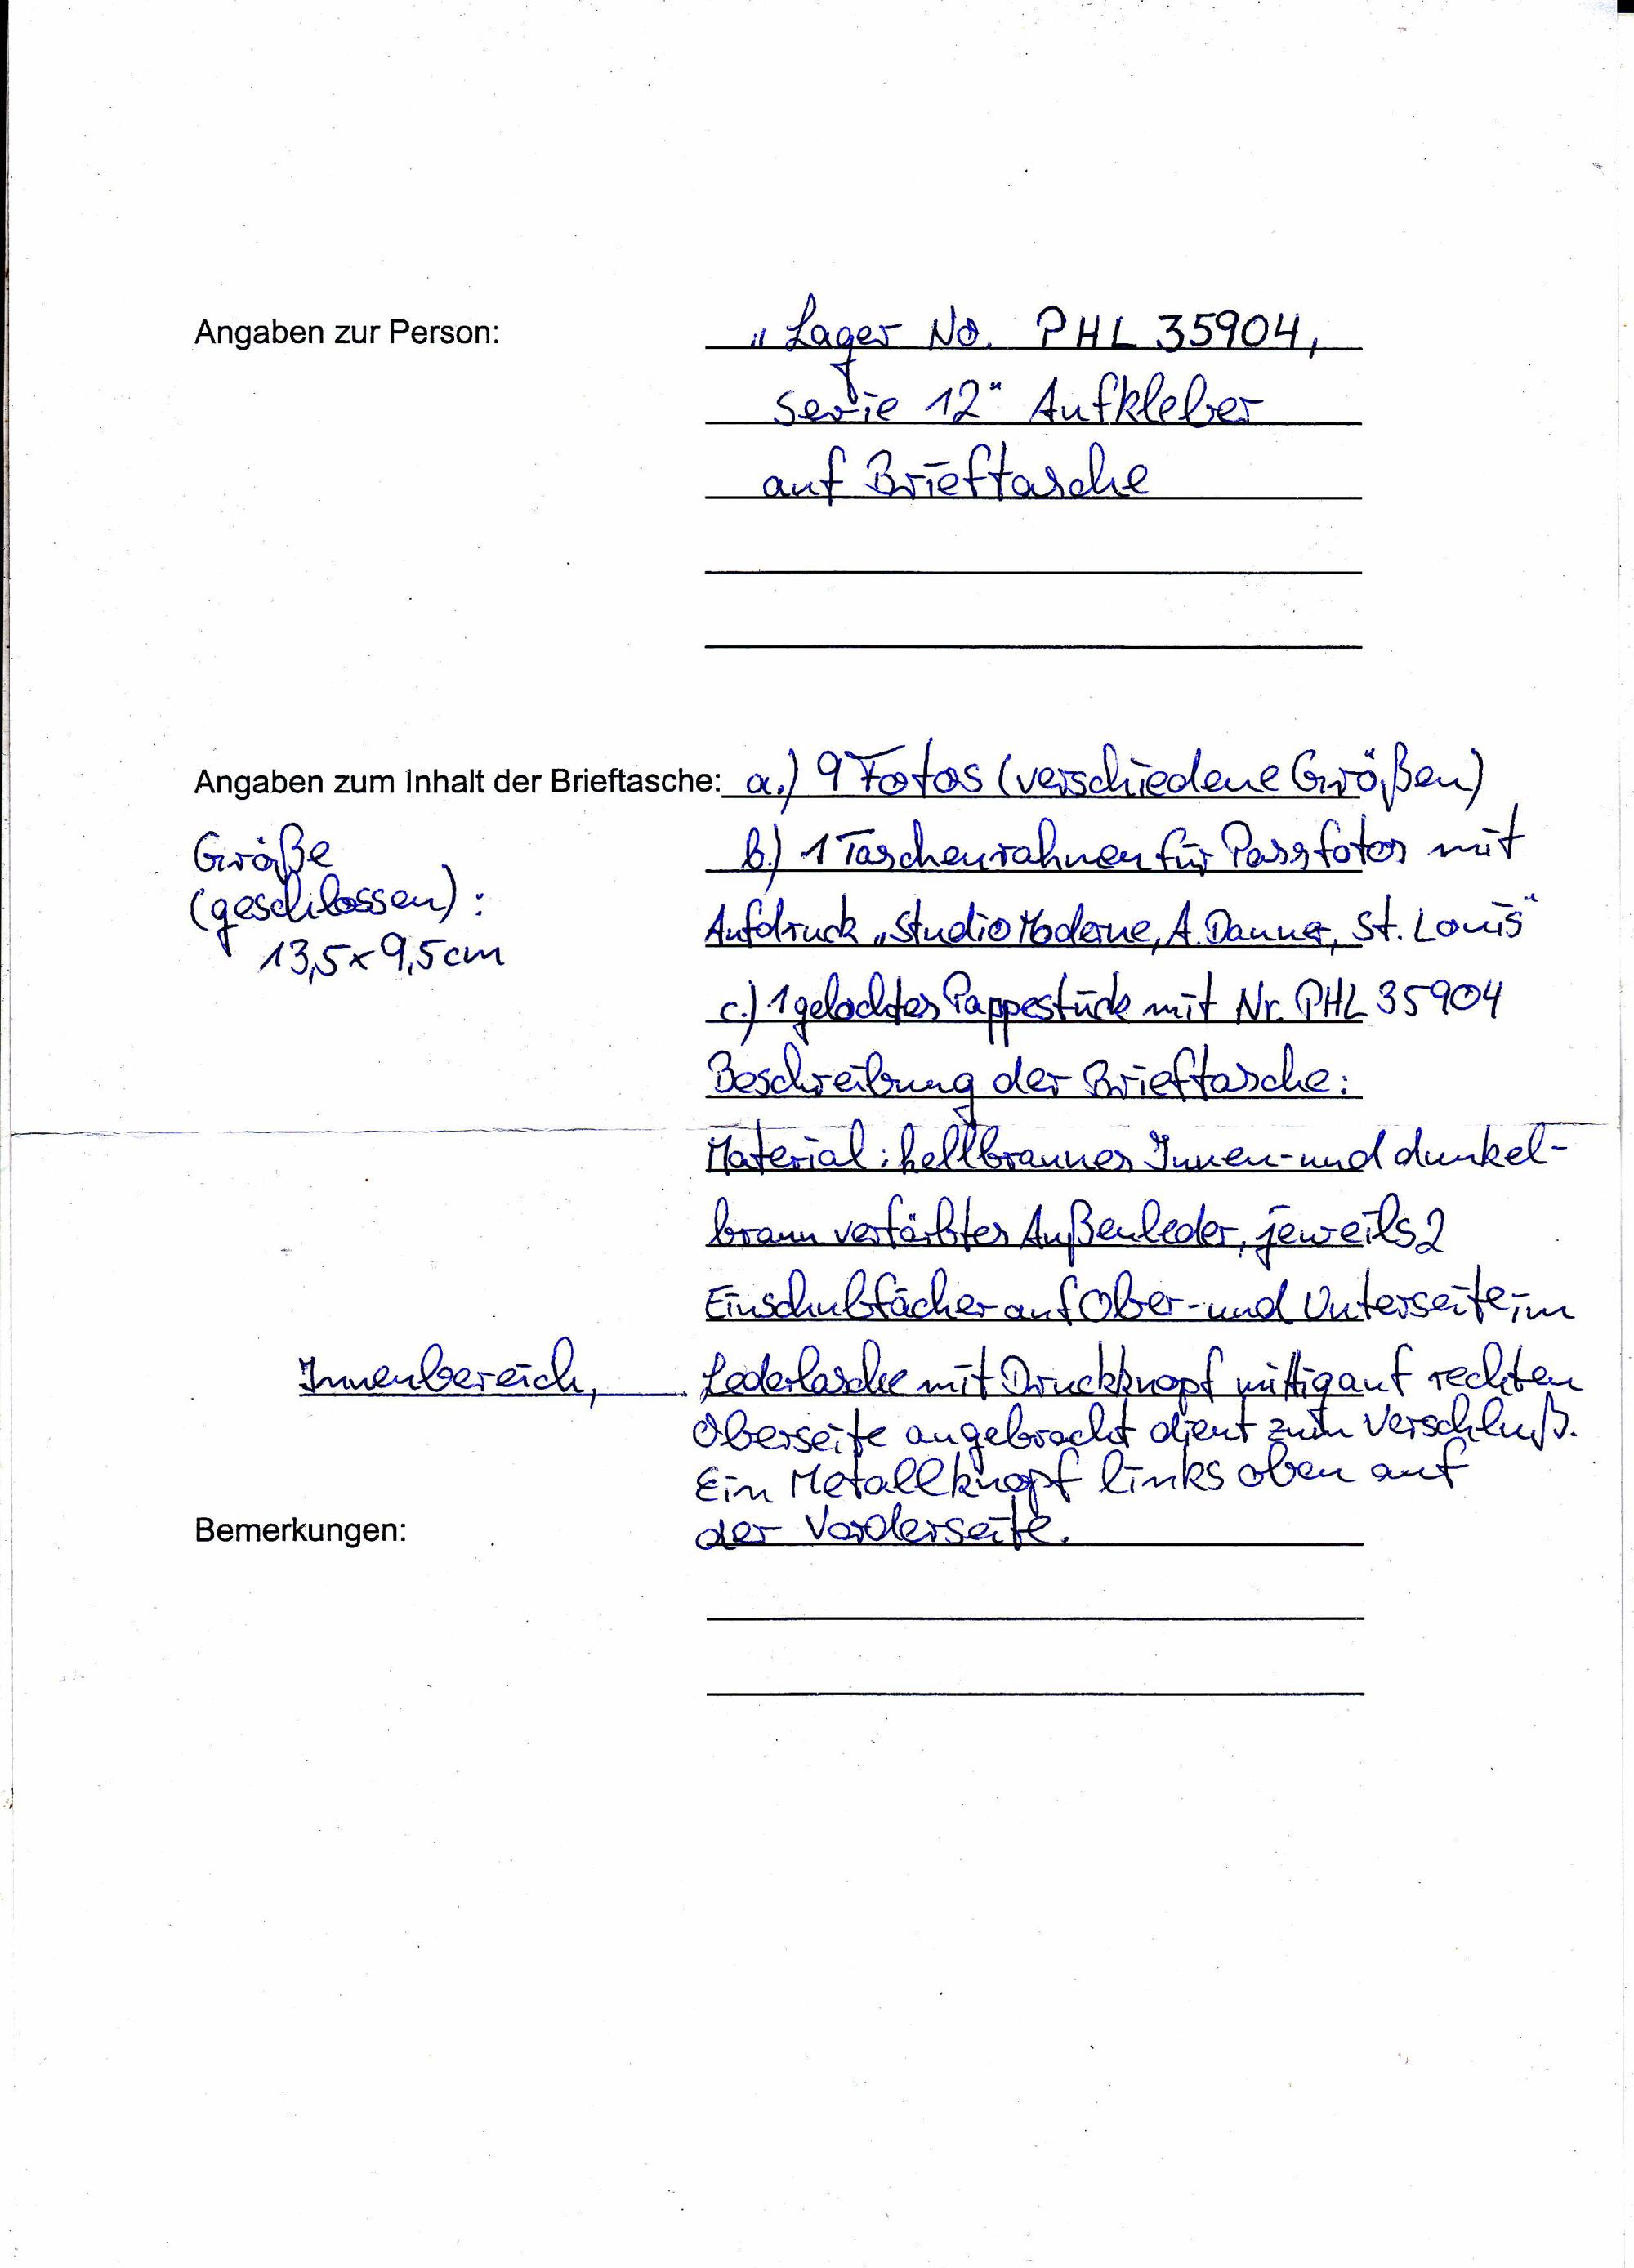 Angaben zur Person: „Lager No. PHL 35904,
Serie 12“ Aufkleber
auf Brieftasche
Angaben zum Inhalt der Brieftasche: a.) 9 Fotos (verschiedene Größen)
Größe
(geschlossen):
13,5 x 9,5 cm
b.) 1 Taschenrahmen für Passfotos mit
Aufdruck „Studio Moderne, A. Danner, St. Louis“
c.) 1 gelochtes Pappestück mit Nr. PHL 35904
Beschreibung der Brieftasche:
Material: hellbraunes Innen- und dunkel-
braun verfärbtes Außenleder, jeweils 2
Einschubfächer auf Ober- und Unterseite, im
Innenbereich, Lederlasche mit Druckknopf mittig auf rechten
Oberseite angebracht dient zum Verschluß.
Ein Metallknopf links oben auf
der Vorderseite.
Bemerkungen: